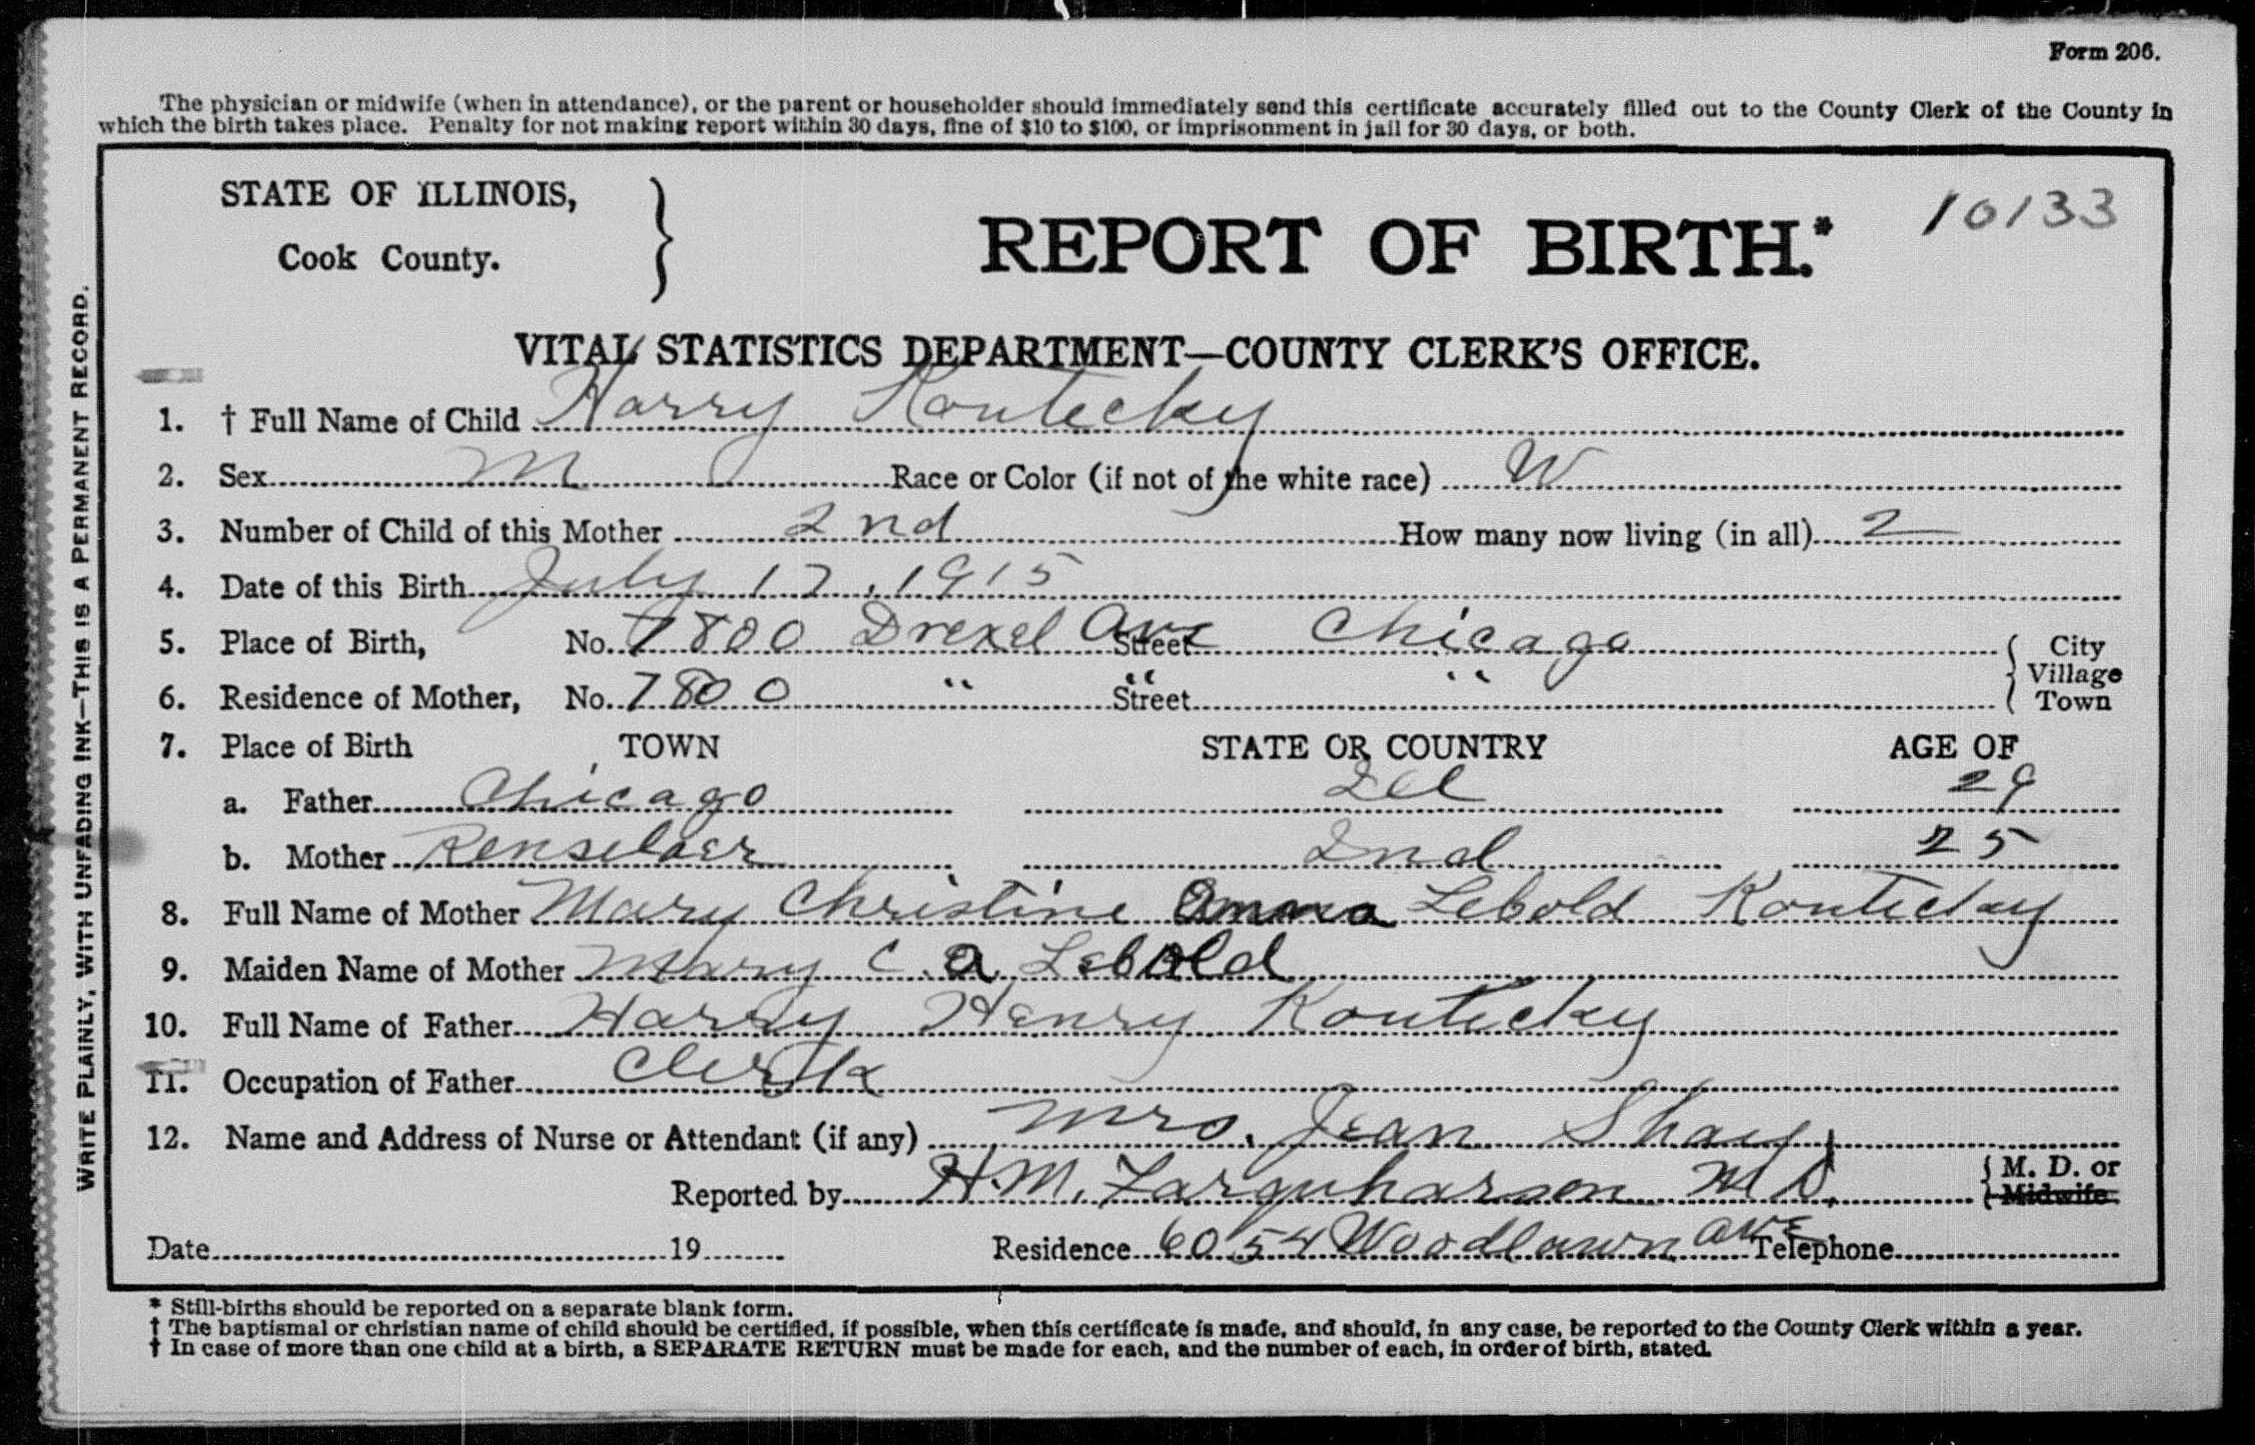 Form 206.
The physician or midwife (when in attendance), or the parent or householder should immediately send this certificate accurately filled out to the County Clerk of the County in
which the birth takes place. Penalty for not making report within 30 days, fine of $10 to $100, or imprisonment in jail for 30 days, or both.
STATE OF ILLINOIS,
Cook County.
REPORT OF BIRTH.* 10133
VITAL STATISTICS DEPARTMENT—COUNTY CLERK'S OFFICE.
1. † Full Name of Child Harry Koutecky
2. Sex M Race or Color (if not of the white race) W
3. Number of Child of this Mother 2nd How many now living (in all) 2
4. Date of this Birth July 17, 1915
5. Place of Birth, No. 7800 Drexel Ave Street Chicago { City
Village
6. Residence of Mother, No. 7800 " Street " " Town
7. Place of Birth TOWN STATE OR COUNTRY AGE OF
a. Father Chicago Ill 29
b. Mother Renselaer Ind 25
8. Full Name of Mother Mary Christine Anna Lebold Koutecky
9. Maiden Name of Mother Mary C. A. Lebold
10. Full Name of Father Harry Henry Koutecky
11. Occupation of Father Clerk
12. Name and Address of Nurse or Attendant (if any) Mrs. Jean Shay
Reported by H. M. Farquharson M D, { M. D. or
Midwife.
Date 19 Residence 6054 Woodlawn Ave Telephone
* Still-births should be reported on a separate blank form.
† The baptismal or christian name of child should be certified, if possible, when this certificate is made, and should, in any case, be reported to the County Clerk within a year.
† In case of more than one child at a birth, a SEPARATE RETURN must be made for each, and the number of each, in order of birth, stated.
WRITE PLAINLY, WITH UNFADING INK—THIS IS A PERMANENT RECORD.